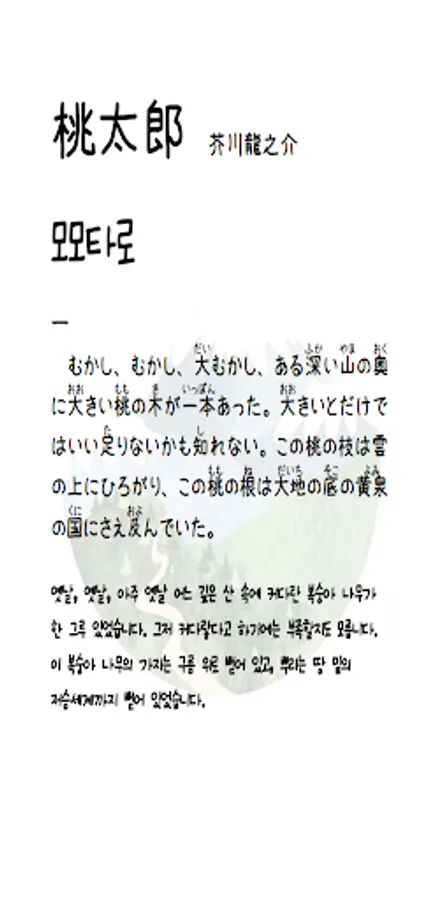 桃太郎 芥川龍之介
모모타로
一
むかし、むかし、大むかし、ある深い山の奥
に大きい桃の木が一本あった。大きいとだけで
はいい足りないかも知れない。この桃の枝は雲
の上にひろがり、この桃の根は大地の底の黄泉
の国にさえ及んでいた。
옛날, 옛날, 아주 옛날 어느 깊은 산 속에 커다란 복숭아 나무가
한 그루 있었습니다. 그저 커다랗다고 하기에는 부족할지도 모릅니다.
이 복숭아 나무의 가지는 구름 위로 뻗어 있고, 뿌리는 땅 밑의
저승세계까지 뻗어 있었습니다.